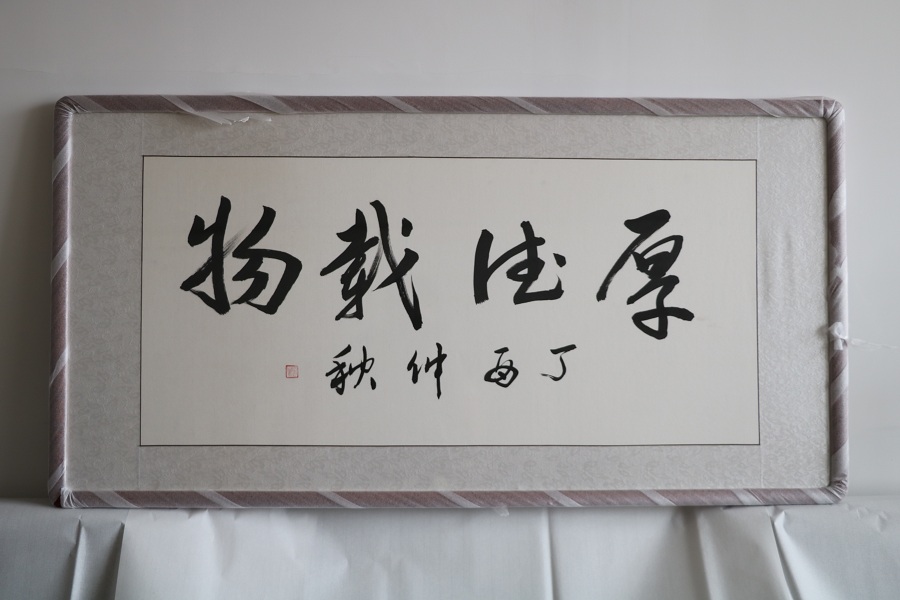 厚德載物
丁酉仲秋